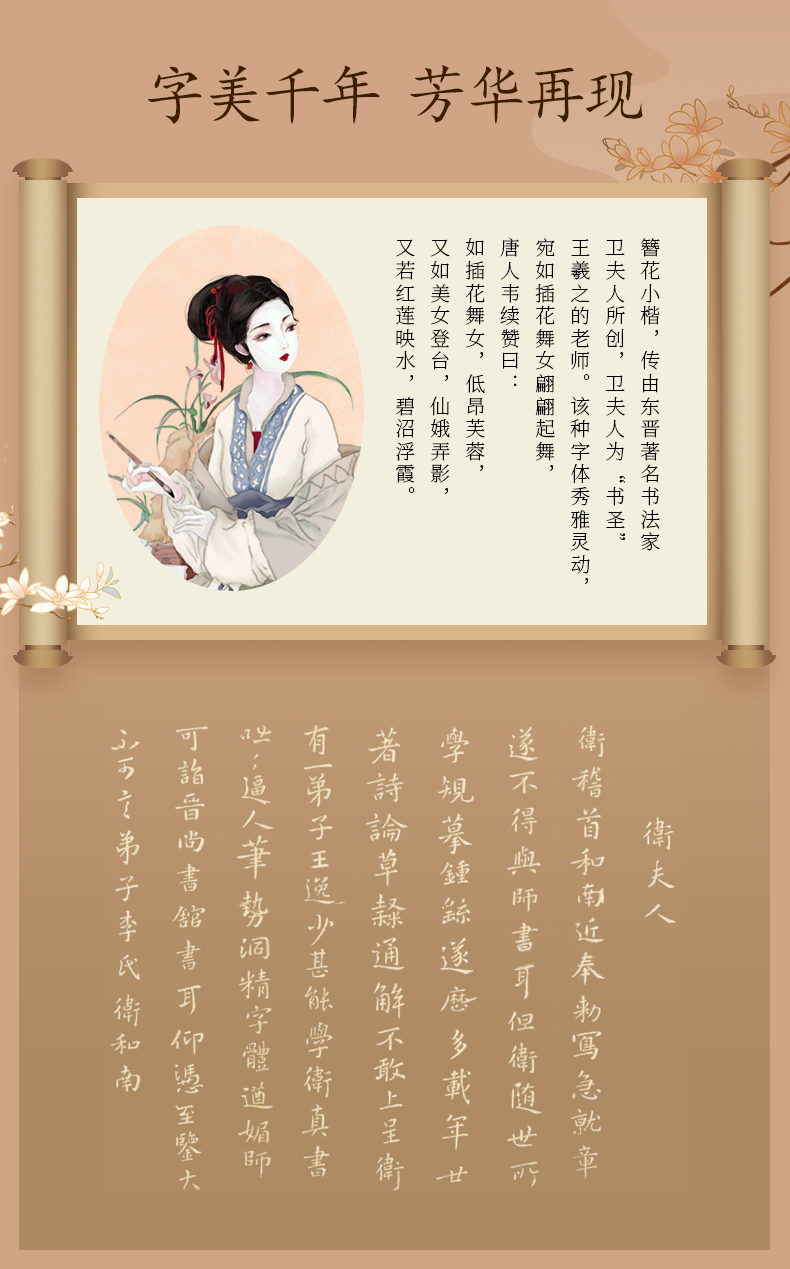 字美千年 芳华再现
簪花小楷，传由东晋著名书法家
卫夫人所创，卫夫人为“书圣”
王羲之的老师。该种字体秀雅灵动，
宛如插花舞女翩翩起舞，
唐人韦续赞曰：
如插花舞女，低昂芙蓉，
又如美女登台，仙娥弄影，
又若红莲映水，碧沼浮霞。
衛夫人
衛稽首和南近奉勅寫急就章
遂不得與師書耳但衛随世所
學規摹鍾繇遂歷多載年廿
著詩論草隸通解不敢上呈衛
有一弟子王逸少甚能學衛真書
咄〻逼人筆勢洞精字體遒媚師
可詣晉尚書館書耳仰憑至鑒大
不可言弟子李氏衛和南